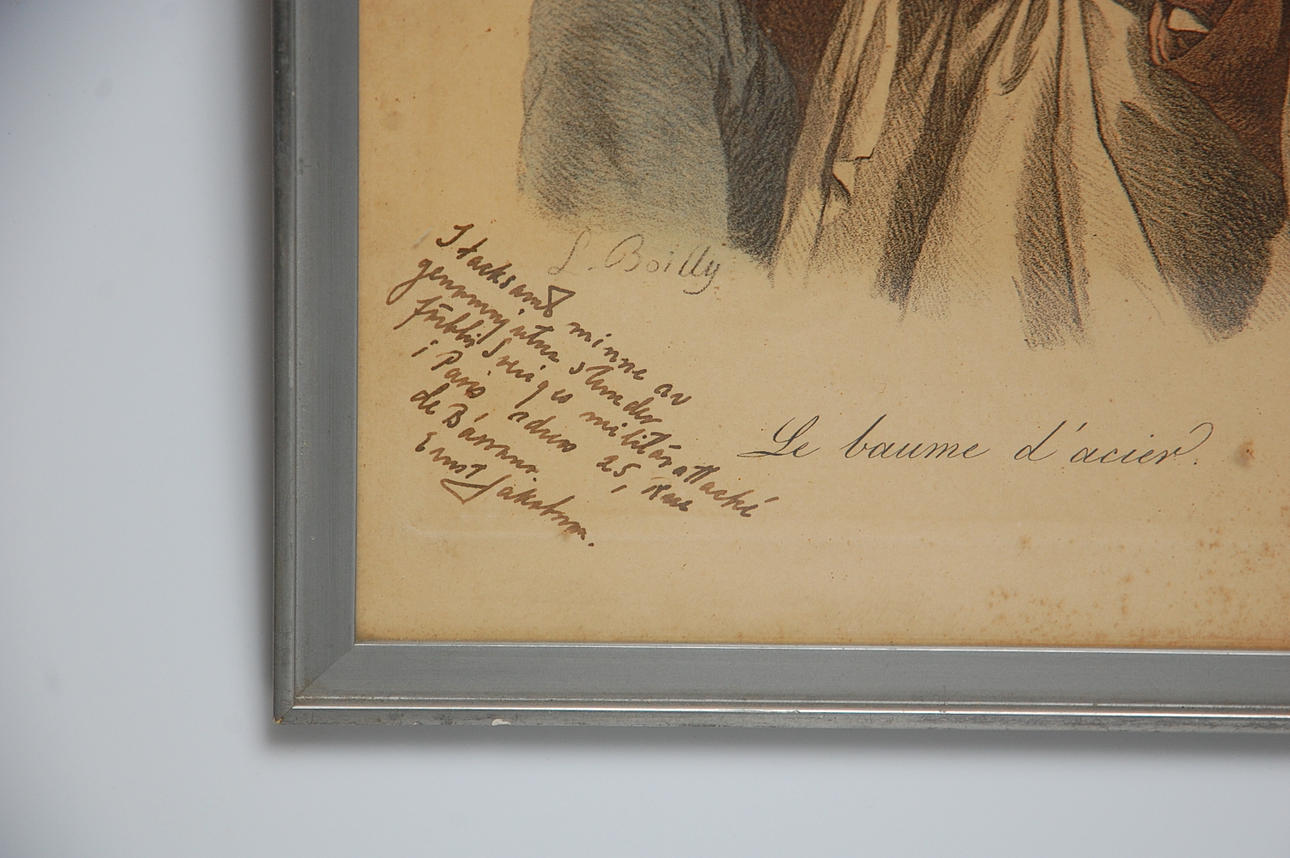 L. Boilly
I tacksamt minne av
genomnjutna stunder
från Sveriges militärattaché
i Paris adress 25, Rue
de Bassano.
Ernst
Le baume d'acier.